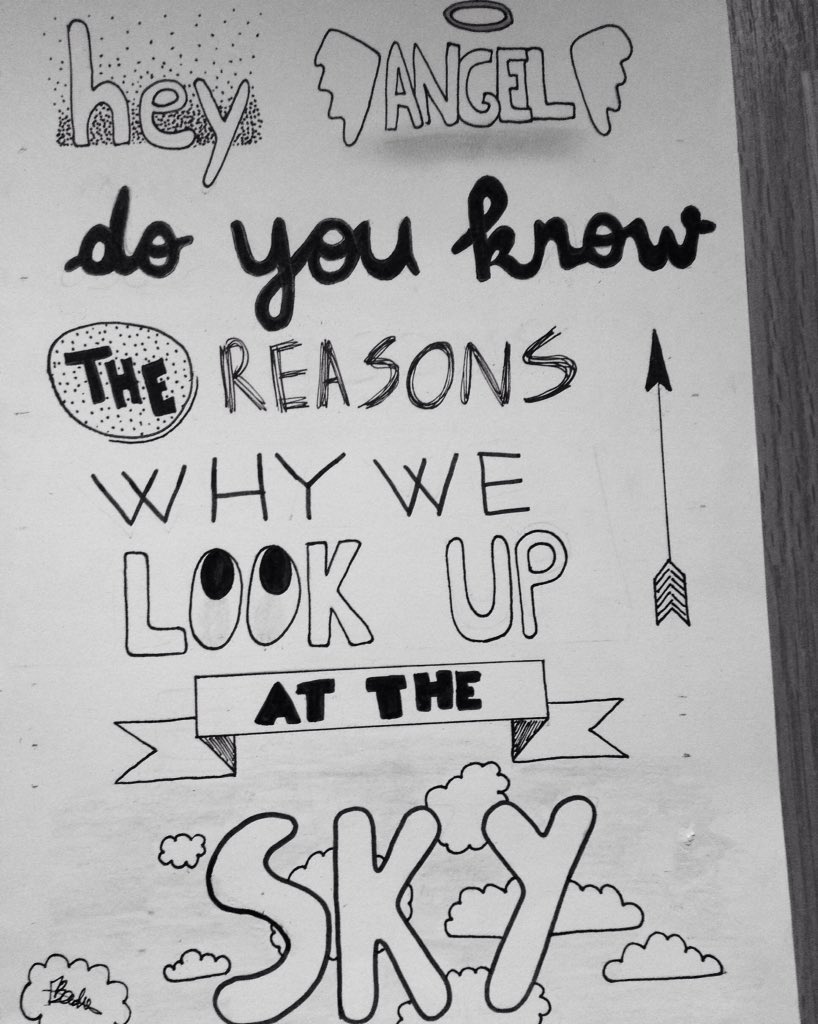 hey ANGEL
do you know
THE REASONS
WHY WE
LOOK UP
AT THE
SKY